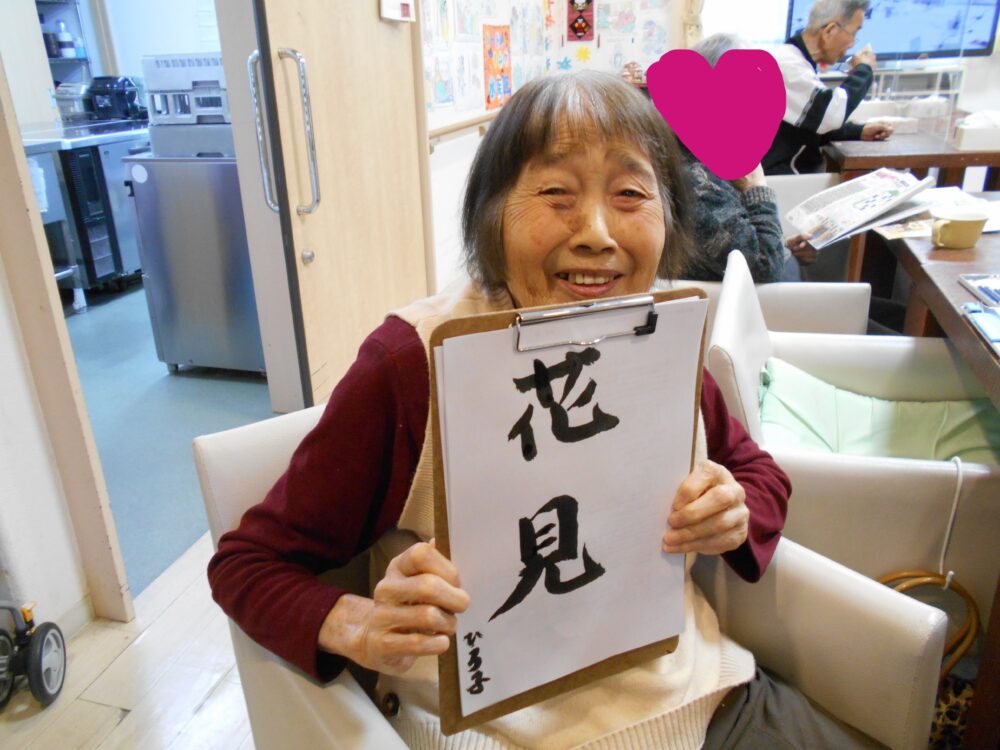 花見
ひろ子